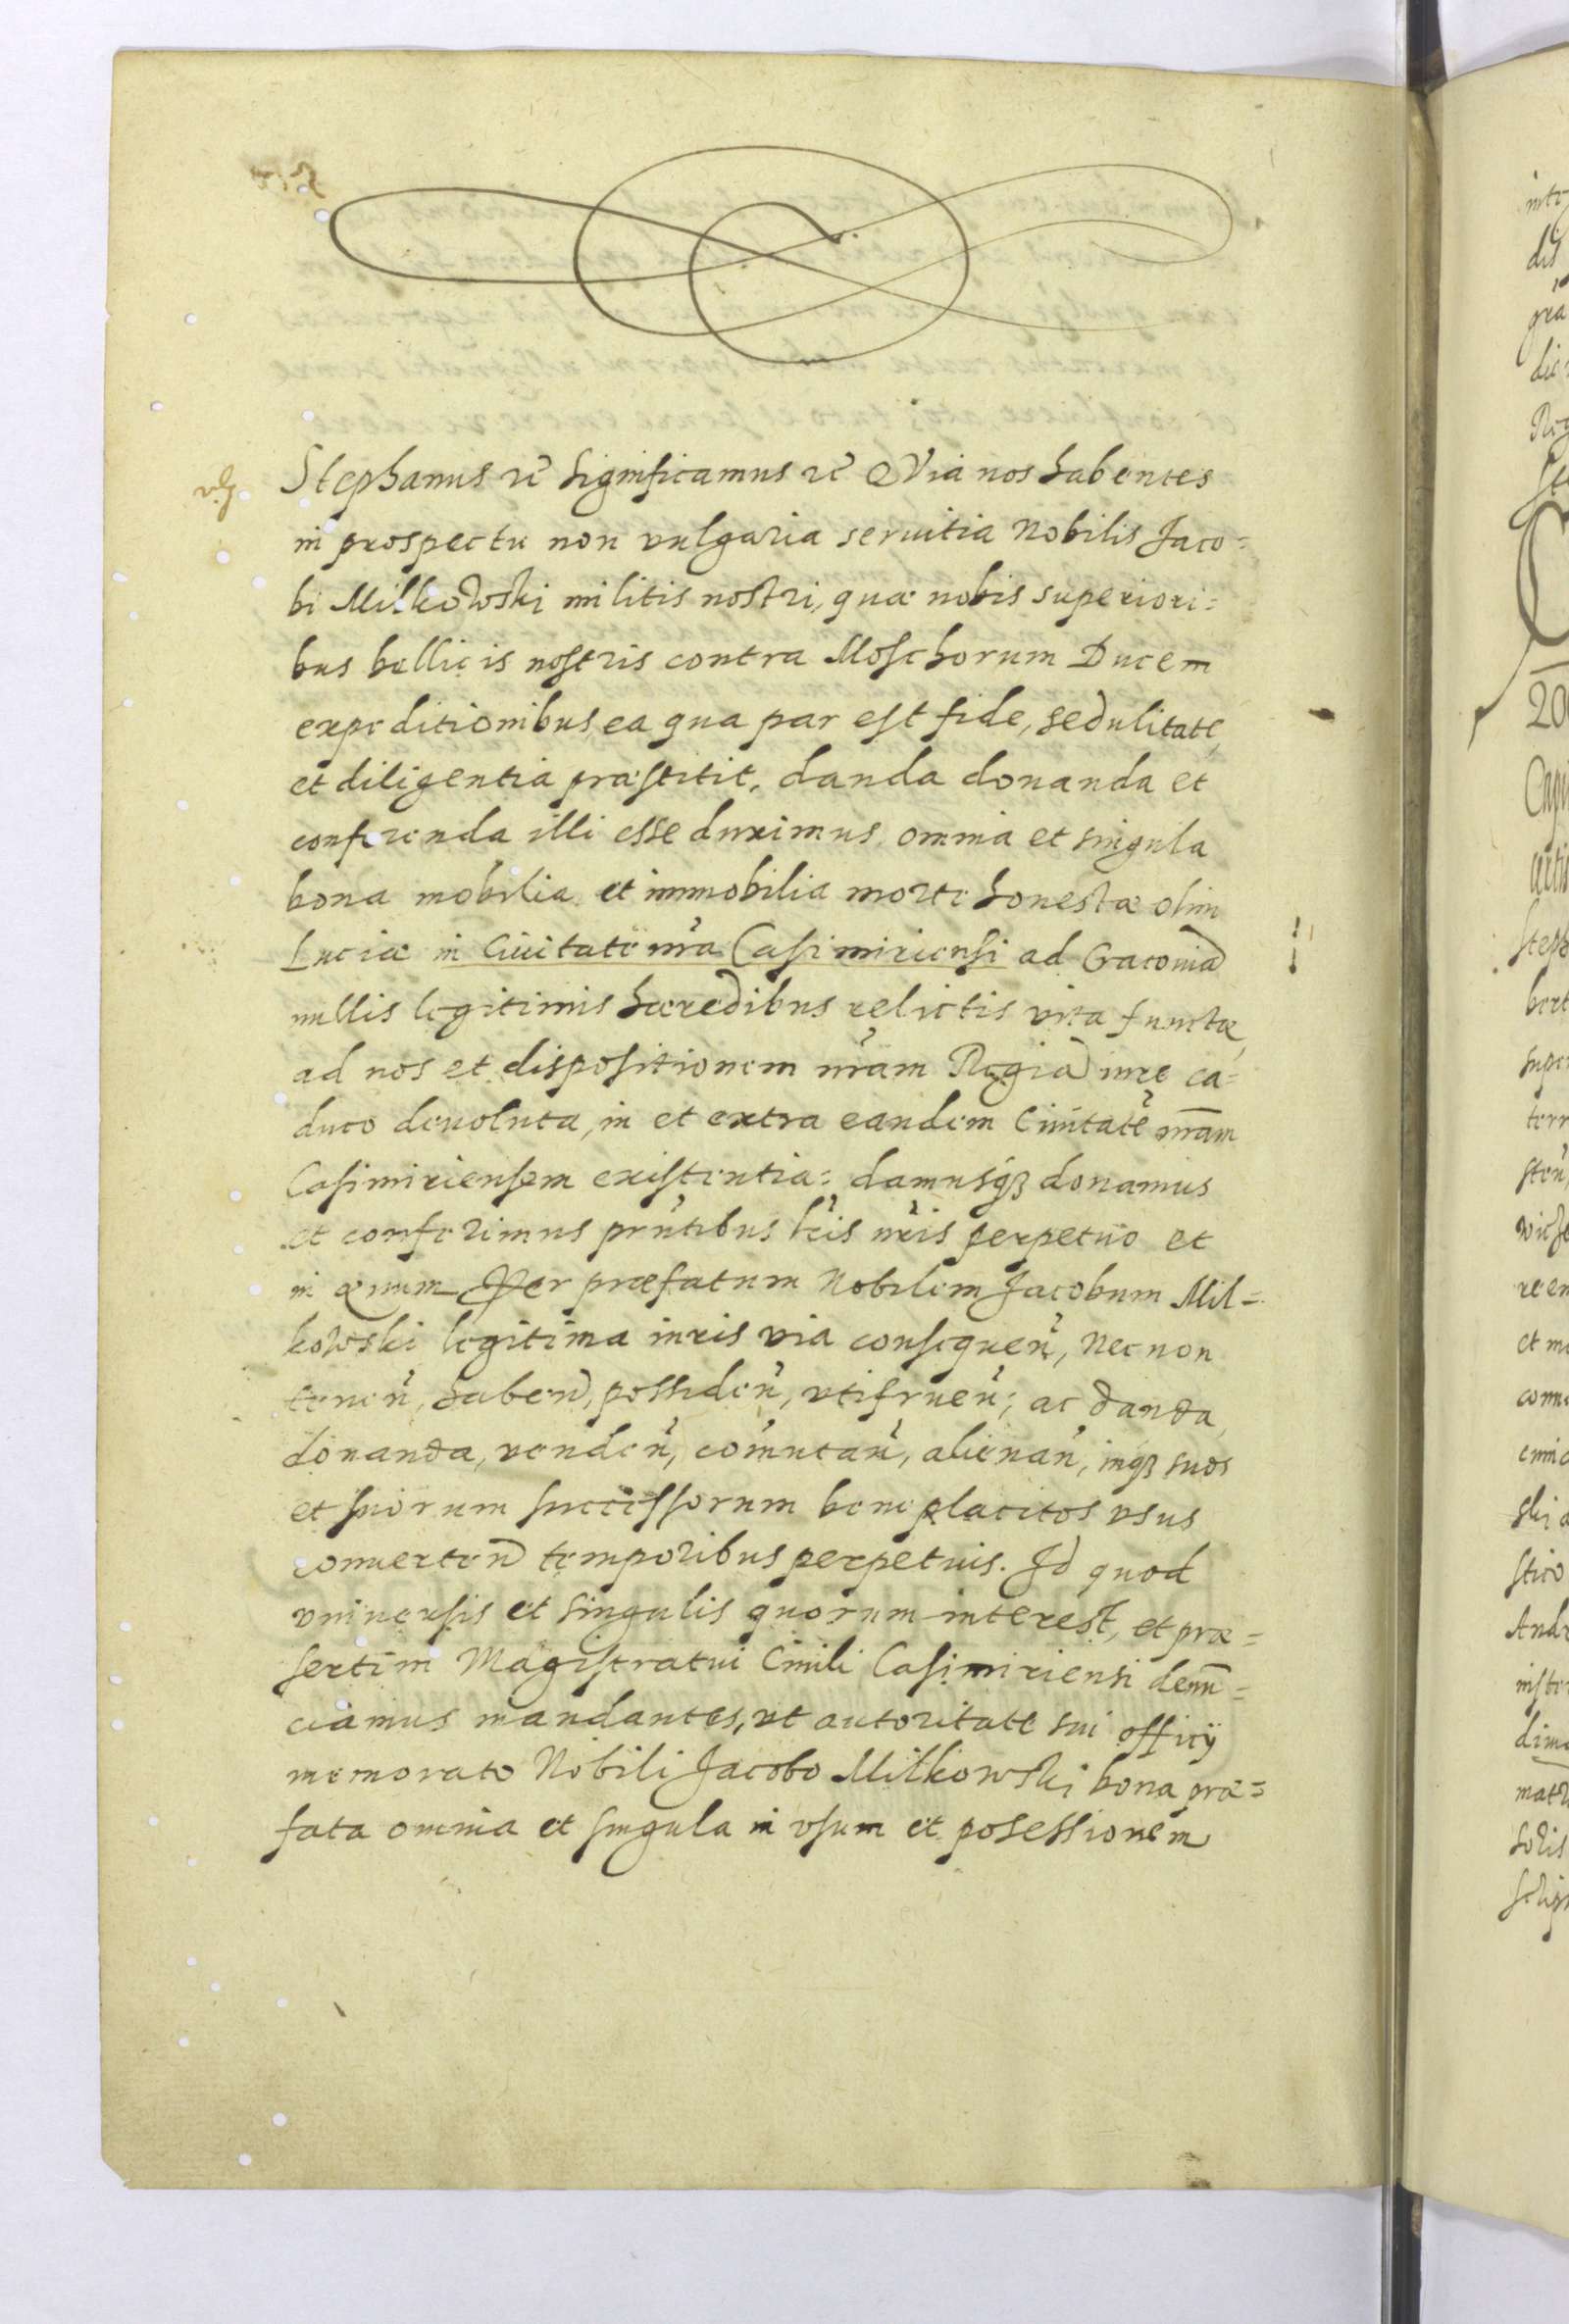 Stephanus etc̃ significamus etc̃ QVia nos habentes
in prospectu non vulgaria seruitia Nobilis Jaco=
bi Milkowski militis nostri, quæ nobis superiori=
bus bellicis nostris contra Moschorum Ducem
expeditionibus, ea qua par est fide, sedulitate,
et diligentia præstitit, danda donanda et
conferenda illi esse duximus omnia et singula
bona mobilia et immobilia morte honestæ olim
Luciæ in Ciuitate nr̃a Casimiriensi ad Cracouiã
nullis legitimis hæredibus relictis vita functæ,
ad nos et dispositionem nr̃am Regiã iure ca=
duco deuoluta, in et extra eandem Ciuitatẽ nr̃am
Casimiriensem existentia: damusq3 donamus
et conferimus prñtibus lr̃is nr̃is perpetuo et
in æuum Per præfatum Nobilem Jacobum Mil=
kowski legitima iuris via consequeñ, Nec non
teneñ, habeñ, possideñ, vtifrueñ; ac danda,
donanda, vendeñ, com̃utañ, alienañ, inq3 suos
et suorum successorum beneplacitos vsus
conuerteñ temporibus perpetuis. Id quod
vniuersis et singulis quorum interest, et præ=
sertim Magistratui Ciuili Casimiriensi denũ=
ciamus mandantes, vt autoritate sui officij
memorato Nobili Jacobo Milkowski bona præ=
fata omnia et singula in vsum et posessionem